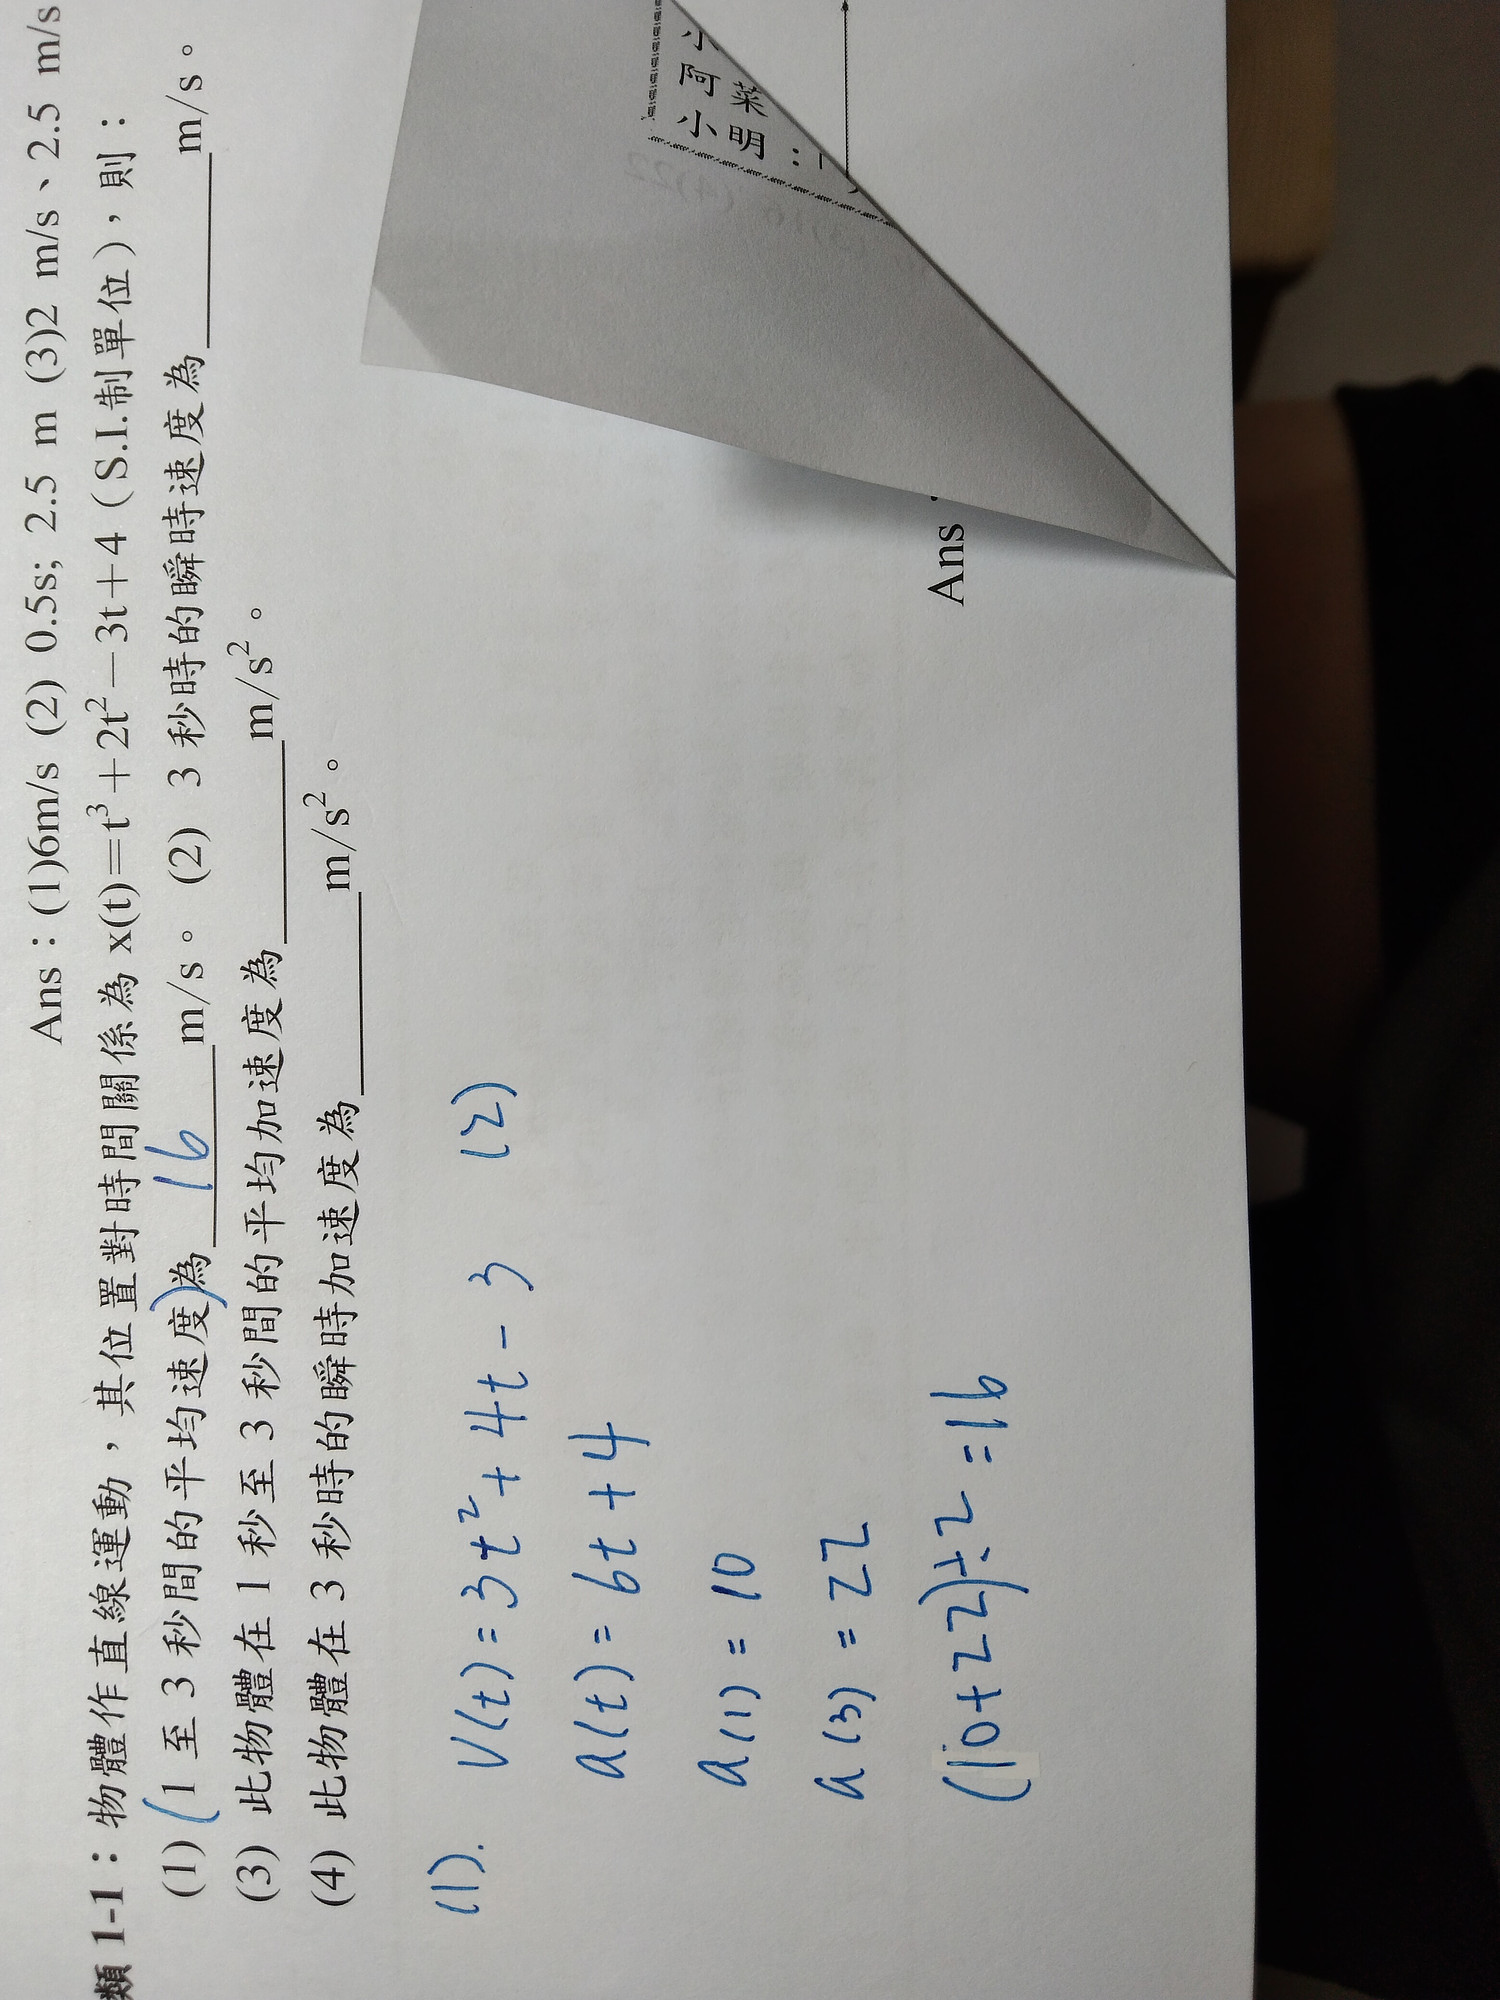 Ans：(1)6m/s (2) 0.5s; 2.5 m (3)2 m/s、2.5 m/s
類 1-1：物體作直線運動，其位置對時間關係為 x(t)=t³＋2t²－3t＋4（S.I.制單位），則：
(1) (1 至 3 秒間的平均速度)為 16 m/s。 (2) 3 秒時的瞬時速度為______m/s。
(3) 此物體在 1 秒至 3 秒間的平均加速度為______m/s²。
(4) 此物體在 3 秒時的瞬時加速度為______m/s²。
(1). V(t)=3t²+4t-3 (2)
a(t)=6t+4
a(1)=10
a(3)=22
(10+22)÷2=16
Ans：
小
阿菜
小明：「
(3)16 (4)22